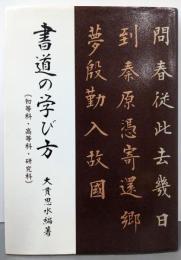 問春從此去幾日
到秦原憑寄還郷
夢殷勤入故國
書道の学び方
(初等科・高等科・研究科)
大貫思水編著